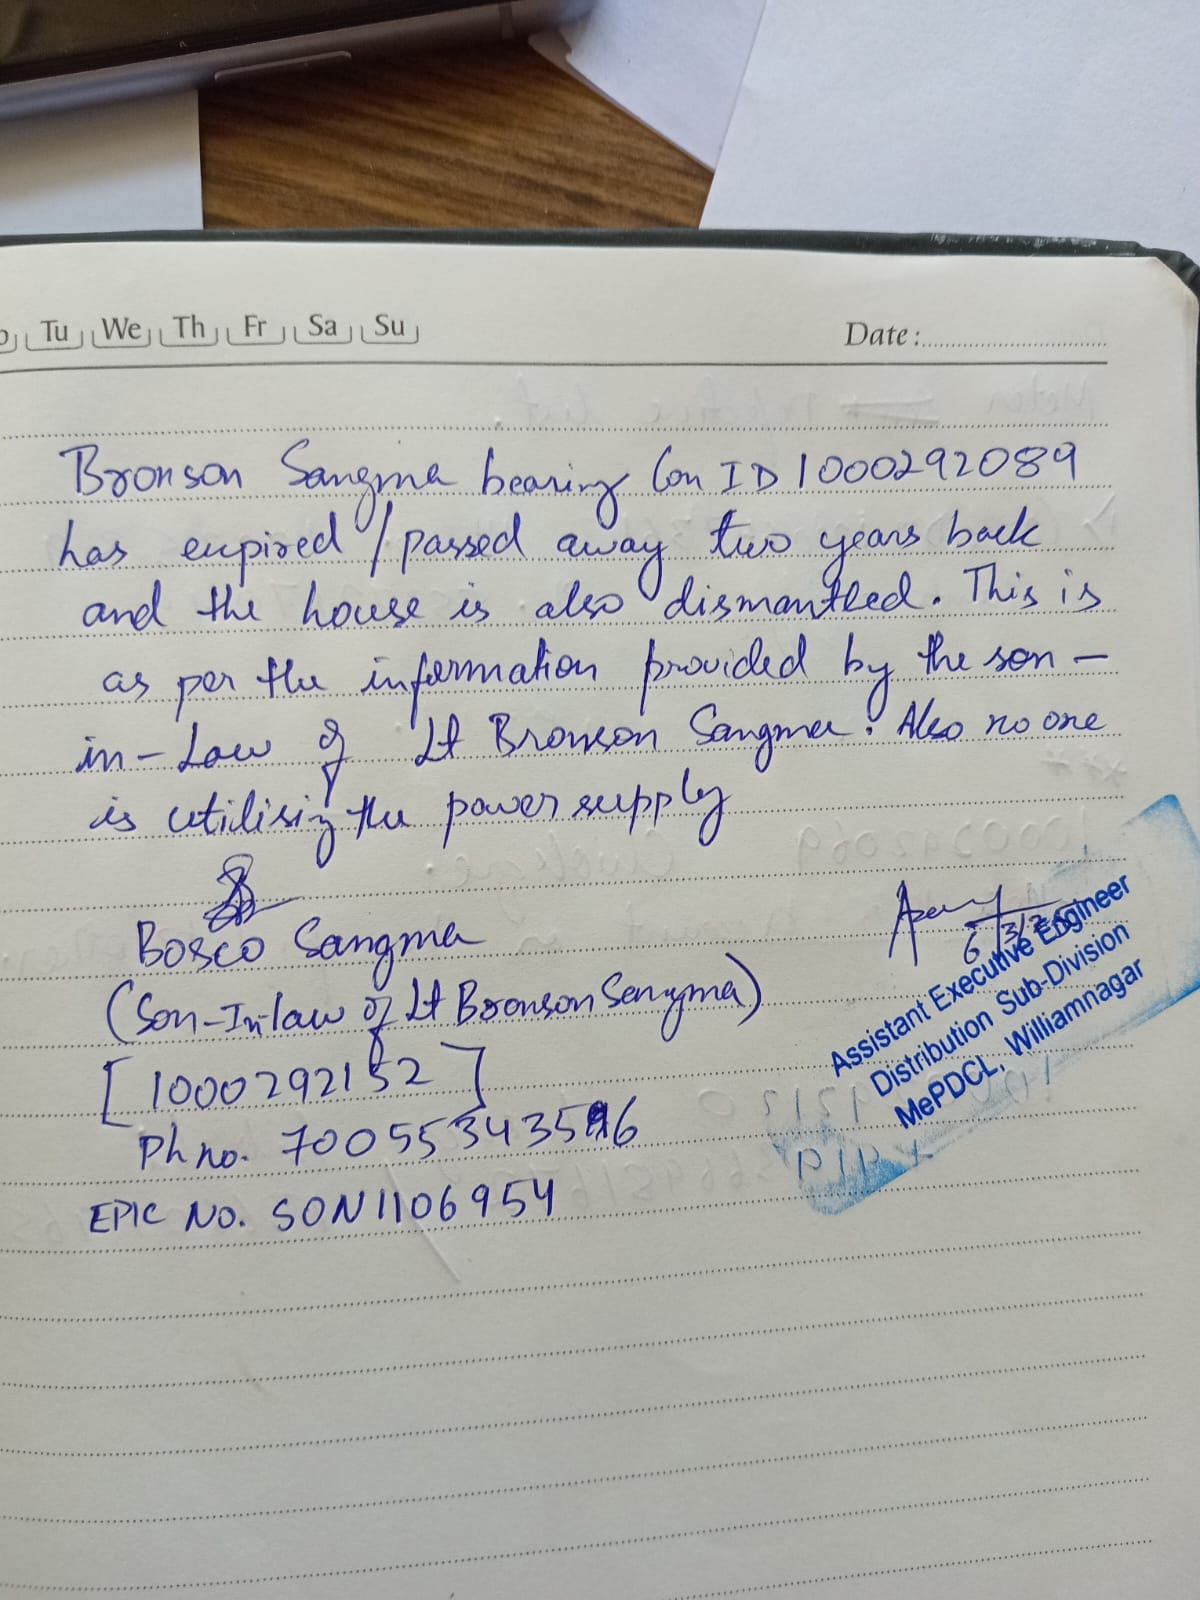 Tu We Th Fr Sa Su Date :
Bronson Sangma bearing Con ID 1000292089
has expired / passed away two years back
and the house is also dismantled. This is
as per the information provided by the son-
in-Law of Lt Bronson Sangma. Also no one
is utilising the power supply
Bosco Sangma
(Son-In-law of Lt Bronson Sangma)
[1000292152]
Ph no.
EPIC NO. SON1106954
Assistant Executive Engineer
Distribution Sub-Division
MePDCL, Williamnagar